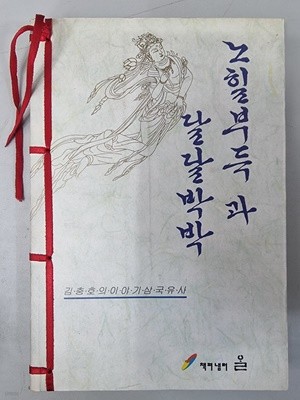 노힐부득 과
달달박박
김·충·호·의·이·야·기·삼·국·유·사
책이있는 올